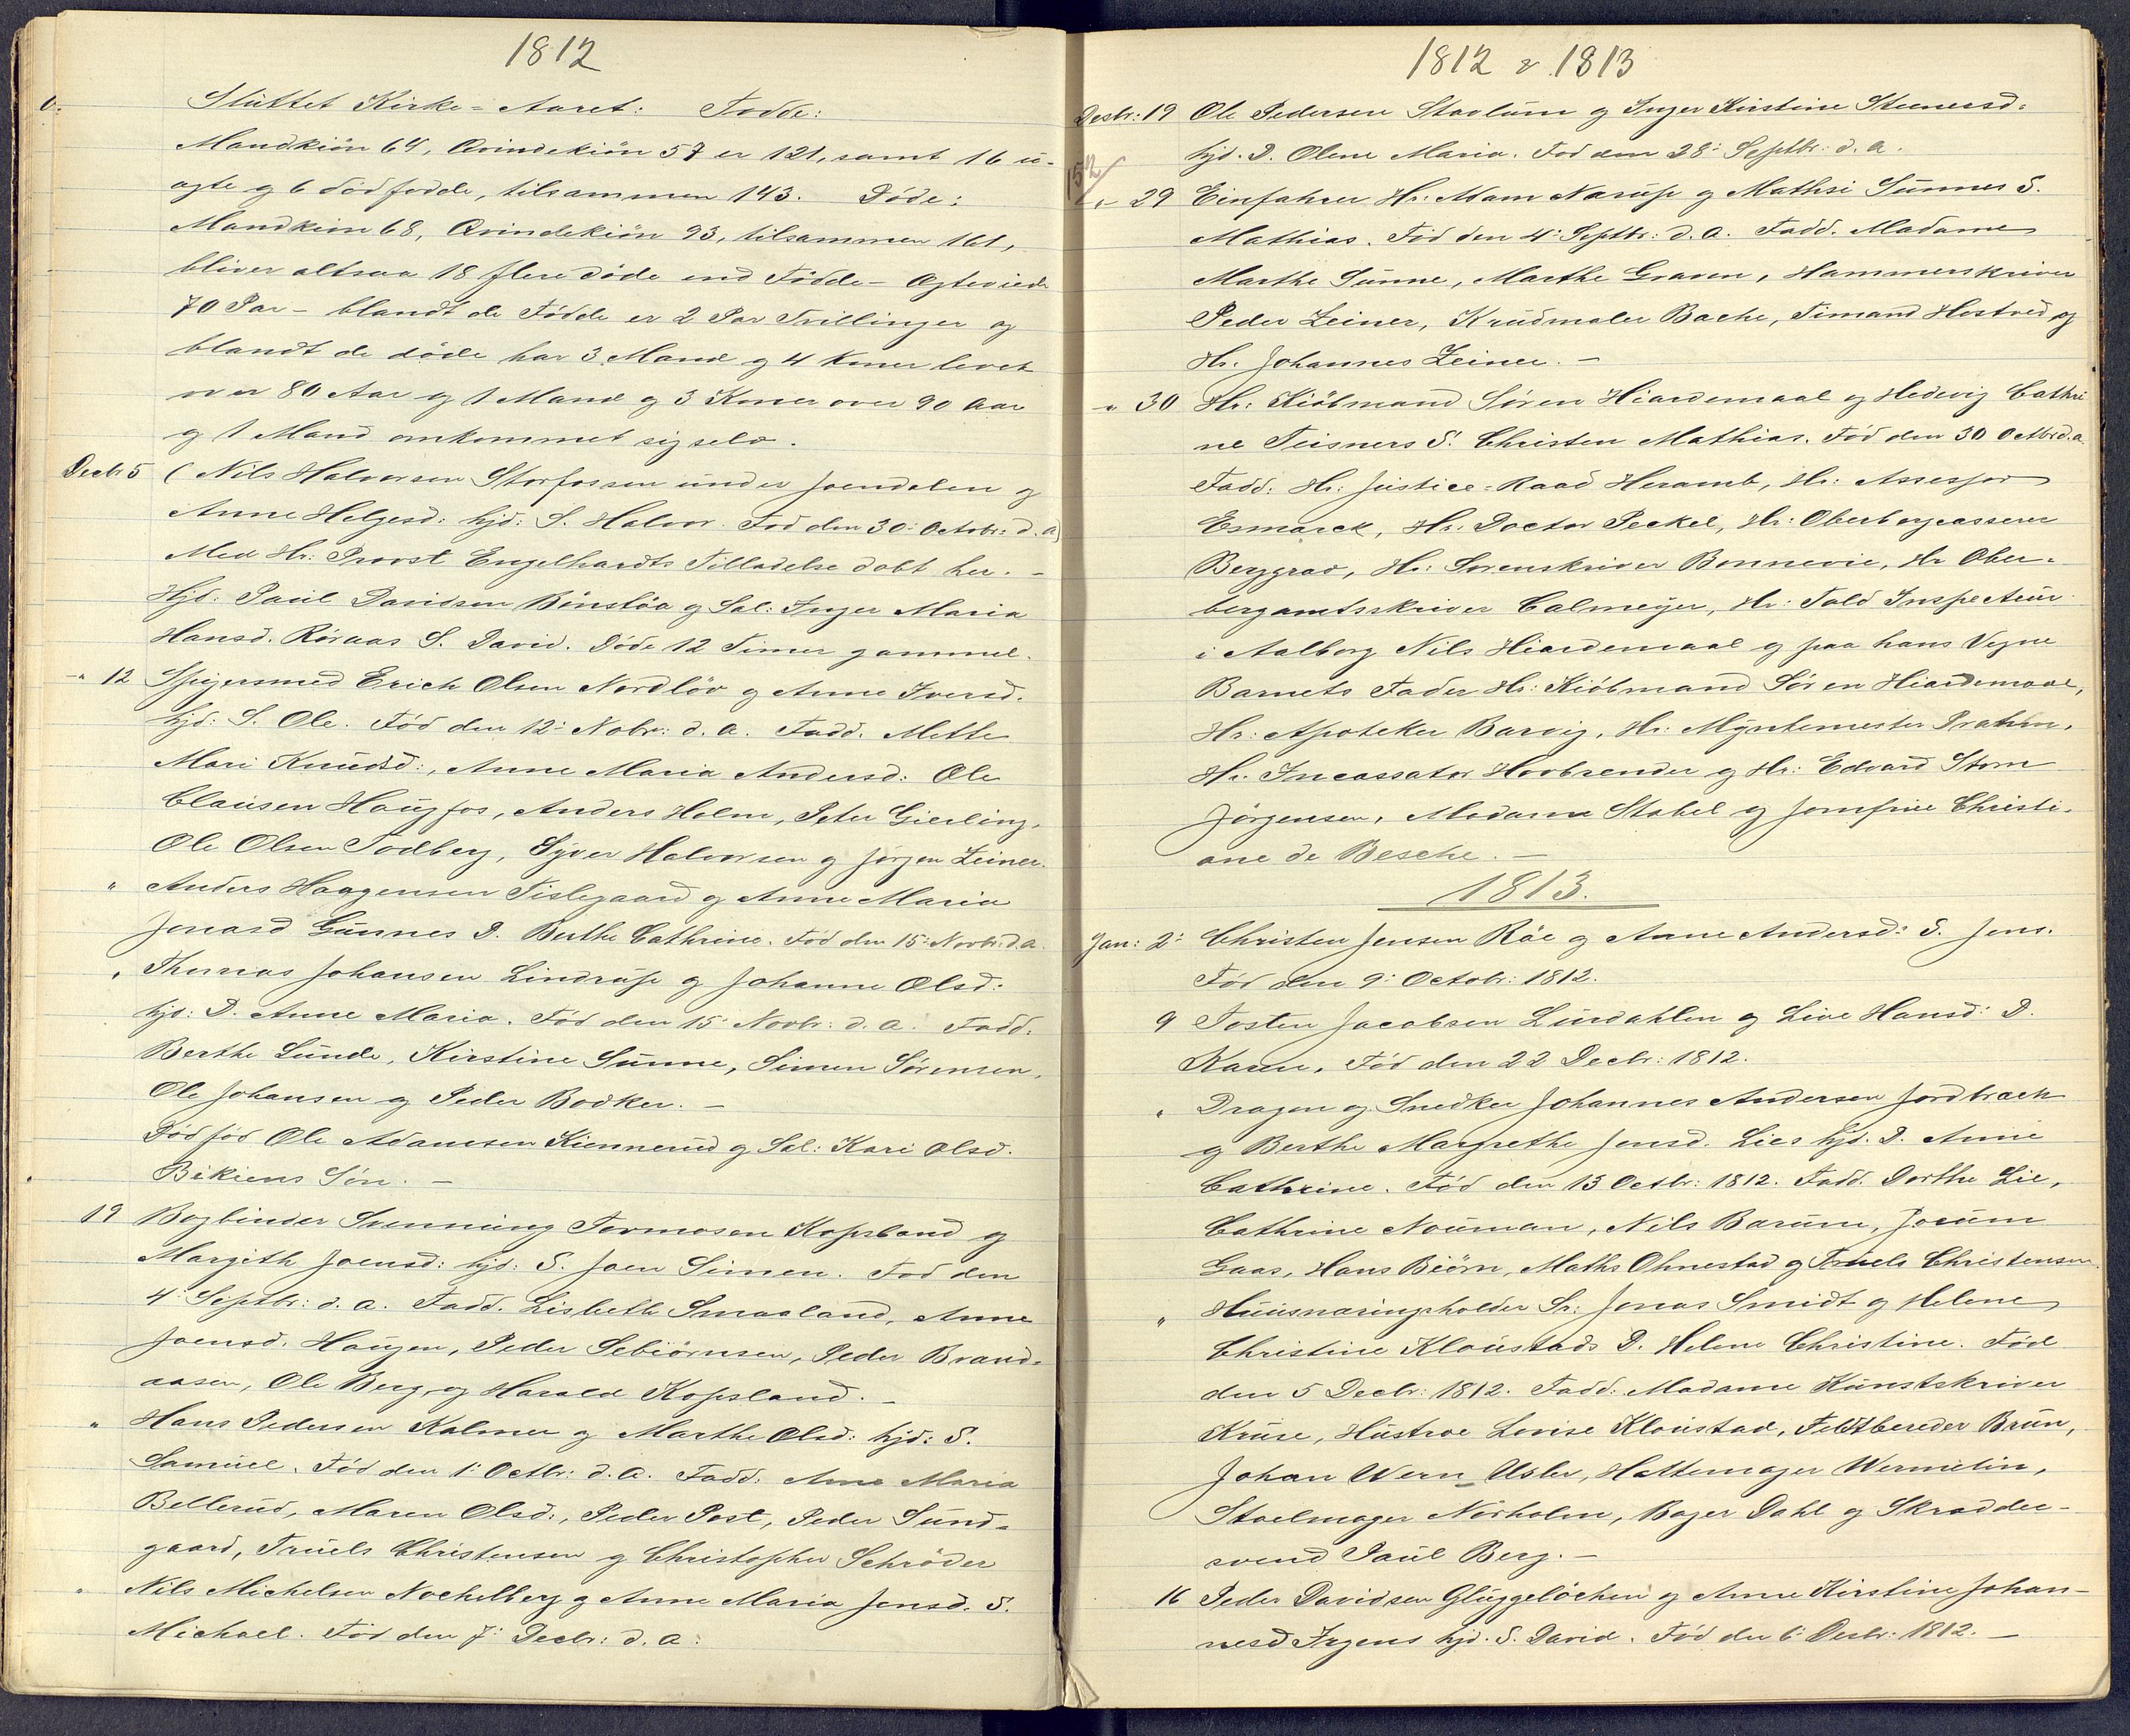 1812
Slüttet Kirke=Aaret: Fødde:
Mandkiön 64, Qvindekiön 57 er 121, samt 16 ü-
ægte og 6 dödfödde, tilsammen 143. Döde:
Mandkiön 68, Qvindekiön 93, tilsammen 161,
bliver altsaa 18 flere döde end Födde - Ægteviede
70 Par - blandt de Födde er 2 Par Tvillinger og
blandt de döde har 3 Mand og 4 Koner levet
over 80 Aar og 1 Mand og 3 Koner over 90 Aar
og 1 Mand omkommet sig selv.
Decbr 5 (Nils Halvorsen Storfossen under Joendalen og
Anne Helgesd: hjd: S. Halvor. Född den 30: Octobr: d. a)
Med Hr: Provst Engelhardts Tilladelse döbt her. -
Hjd: Paül Davidsen Bönslöa og Sal: Inger Maria
Hansd. Röraas S. David. Döde 12 Timer gammel.
-" 12 Spigersmed Erich Olsen Nordlöv og Anne Iversd.
hjd: S. Ole. Föd den 12: Nobr: d. a. Fadd. Mette
Mari Knüdsd:, Anne Maria Andersd: Ole
Claüsen Haügfos, Anders Holm, Peter Gierling,
Ole Olsen Todberg, Syver Halvorsen og Jörgen Zeiner.
" Anders Haagensen Tislegaard og Anne Maria
Jonasd Günnes D. Berthe Cathrine. Föd den 15: Novbr: d. a.
" Thomas Johansen Lindrüp og Johanne Olsd:
hjd: D. Anne Maria. Föd den 15: Novbr: d. a. Fadd:
Berthe Lünde, Kirstine Sünne, Simen Sörensen,
Ole Johansen og Peder Bödker. -
Dödföd Ole Adamsen Kiennerüd og Sal: Kari Olsd.
Bekiens Sön. -
19 Bogbinder Svenning Tormosen Kopsland og
Margith Joensd: hjd: S. Joen Simen. Föd den
4: Septbr: d. a. Fadd. Lisbeth Smaaland, Anne
Joensd. Haügen, Peder Sebiörnsen, Peder Brand=
aasen, Ole Berg og Harald Kopsland. -
" Hans Pedersen Kalmer og Marthe Olsd: hjd: S.
Samüel. Föd den 1: Octbr: d. a. Fadd: Anne Maria
Bellerüd, Maren Olsd:, Peder Post, Peder Sünd=
gaard, Trüels Christensen og Christopher Schröder
" Nils Michelsen Nochelberg og Anne Maria Jensd. S.
Michael. Föd den 7: Decbr: d. a:
1812 & 1813
Desbr: 19 Ole Pedersen Stavlüm og Inger Kirstine Steenersd=
hjd. D. Olene Maria. Föd den 28: Septbr: d. a.
-" 29 Einfahrer Hr: Adam Narüp og Mathsi Sünnes S.
Mathias. Föd den 4: Septbr: d. a. Fadd. Madame
Marthe Sünne, Marthe Graven, Hammerskriver
Peder Zeiner, Krüdmaler Bache, Timand Hostved og
Hr. Johannes Zeiner. -
-" 30 Hr: Kiöbmand Sören Hiardemaal og Hedevig Cathri
ne Teisners S. Christen Mathias. Föd den 30 Octbr d. a.
Fadd: Hr: Jüstice=Raad Heramb, Hr: Assessor
Esmarck, Hr. Doctor Peckel, Hr: Oberbergcasserer
Berggrav, Hr: Sorenskriver Bonnevie, Hr Ober=
bergamtsskriver Calmeÿer, Hr: Told Inspecteür
i Aalborg Nils Hiardemaal og paa hans Vegne
Barnets Fader Hr: Kiöbmand Sören Hiardemaal,
Hr: Apoteker Barvig, Hr: Mÿntemester Prahm,
Hr. Incassator Hovbrender og Hr: Edvard Storm
Jörgensen, Madame Stabel og Jomfrüe Christi=
ane de Besche. -
1813.
Jan: 2: Christen Jensen Röe og Anne Andersd: S. Jens.
Föd den 9: Octobr: 1812.
9 Tosten Jacobsen Lürdahlen og Live Hansd: D.
Karen. Föd den 22 Decbr: 1812.
" Dragon og Snedker Johannes Andersen Jordbræk
og Berthe Margrethe Jensd. Lies hjd. D. Anne
Cathrine. Föd den 13 Octbr: 1812. Fadd. Dorthe Lie,
Cathrine Noüman, Nils Barüm, Jocüm
Gaas, Hans Biörn, Maths Ohnestad og Trüels Christensen.
" Hüüsnæringsholder Sr: Jonas Smidt og Helene
Christine Kloüstads D. Helene Christine. Föd
den 5 Decbr: 1812. Fadd: Madame Künstskriver
Krüse, Hüstroe Lovise Kloüstad, Feldtbereder Brün,
Johan Wern_Usler, Hattemager Wermelin,
Stoelmager Nörholm, Bager Dahl og Skrædder-
svend Paül Berg. -
16 Peder Davidsen Glüggelöchen og Anne Kirstine Johan-
nesd Irgens hjd. S. David. Föd den 6: Desbr: 1812. -